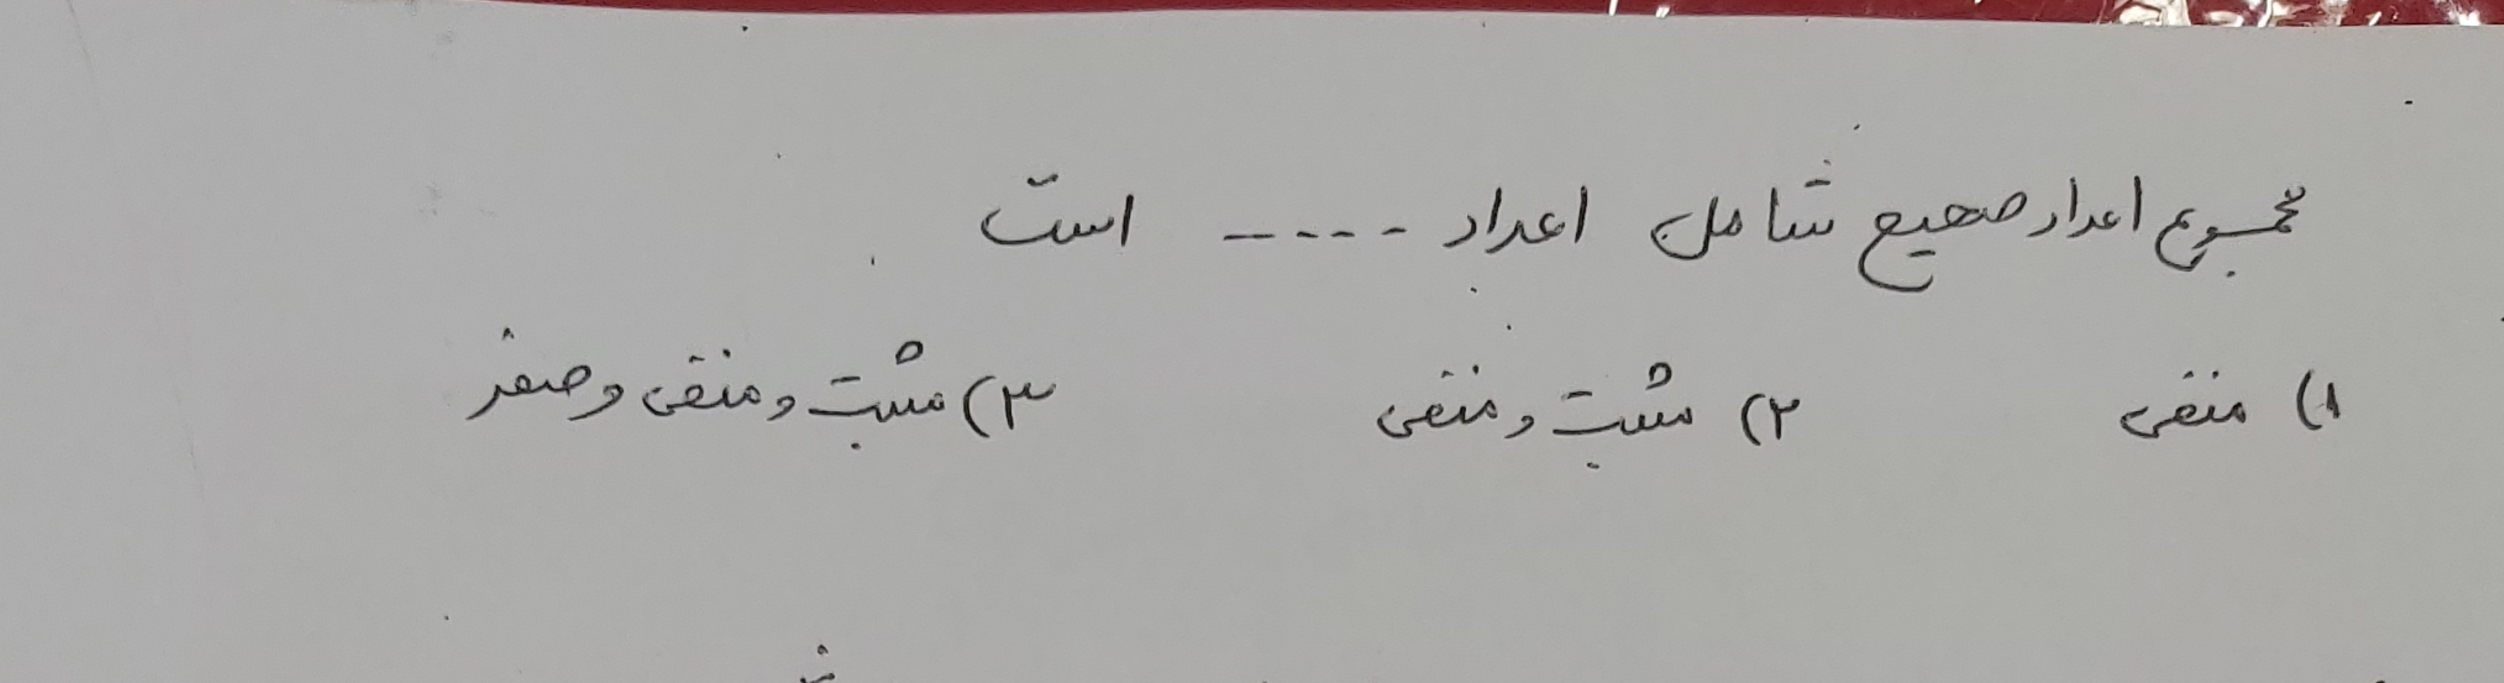 مجموع اعداد صحیح شامل اعداد ----- است
۱) منفی ۲) مثبت و منفی ۳) مثبت و منفی و صفر